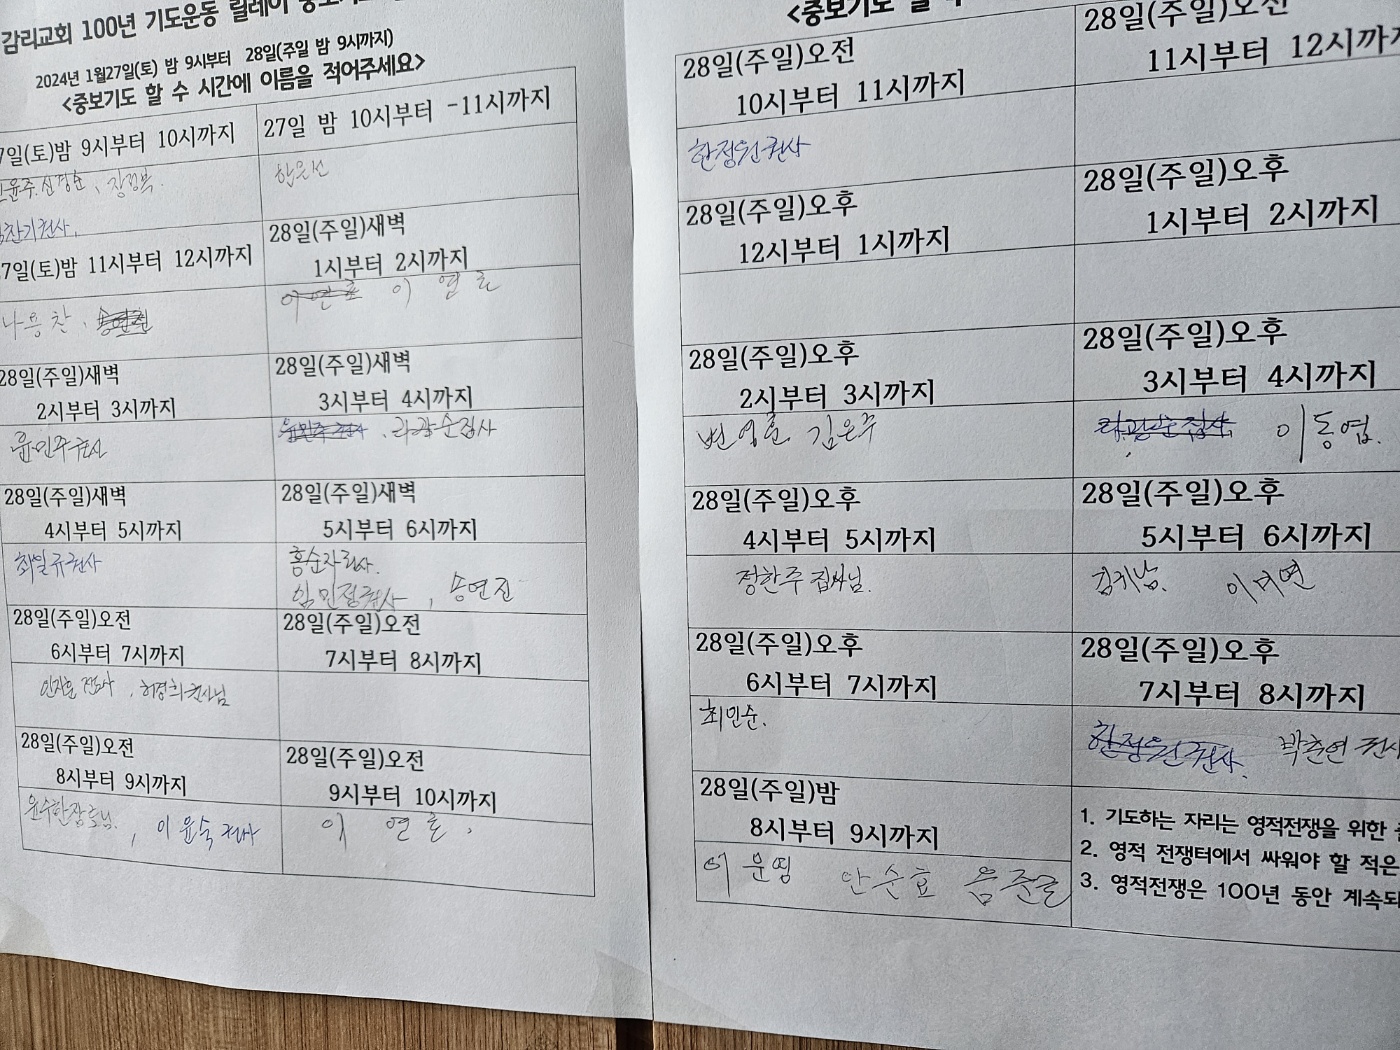 감리교회 100년 기도운동 릴레이
2024년 1월27일(토) 밤 9시부터 28일(주일 밤 9시까지)
<중보기도 할 수 시간에 이름을 적어주세요>
7일(토)밤 9시부터 10시까지
27일 밤 10시부터 -11시까지
7일(토)밤 11시부터 12시까지
28일(주일)새벽
1시부터 2시까지
이 연 호
28일(주일)새벽
2시부터 3시까지
윤민주권사
28일(주일)새벽
3시부터 4시까지
28일(주일)새벽
4시부터 5시까지
최일규권사
28일(주일)새벽
5시부터 6시까지
홍순자권사.
임민정권사, 송연진
28일(주일)오전
6시부터 7시까지
허경희권사님
28일(주일)오전
7시부터 8시까지
28일(주일)오전
8시부터 9시까지
윤수한장로님, 이윤숙권사
28일(주일)오전
9시부터 10시까지
이 연 호.
<중보기도 할 수
28일(주일)오전
10시부터 11시까지
한정원권사
28일(주일)오전
11시부터 12시까지
28일(주일)오후
12시부터 1시까지
28일(주일)오후
1시부터 2시까지
28일(주일)오후
2시부터 3시까지
변영훈 김은주
28일(주일)오후
3시부터 4시까지
이동엽.
28일(주일)오후
4시부터 5시까지
정한주 집사님.
28일(주일)오후
5시부터 6시까지
이미연
28일(주일)오후
6시부터 7시까지
최민순.
28일(주일)오후
7시부터 8시까지
한정원권사. 박춘연 권사
28일(주일)밤
8시부터 9시까지
안순효
1. 기도하는 자리는 영적전쟁을 위한
2. 영적 전쟁터에서 싸워야 할 적은
3. 영적전쟁은 100년 동안 계속되